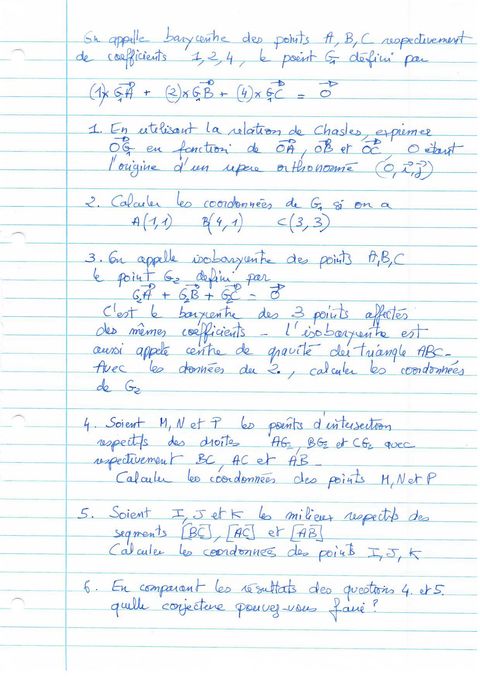 On appelle barycentre des points A, B, C respectivement
de coefficients 1, 2, 4, le point G₁ défini par
(1)×G₁A + (2)×G₁B + (4)×G₁C = 0
1. En utilisant la relation de Chasles, exprimer
OG₁ en fonction de OA, OB et OC, O étant
l'origine d'un repère orthonormé (O, i, j)
2. Calculer les coordonnées de G₁ si on a
A(1,1) B(4,1) C(3,3)
3. On appelle isobarycentre des points A, B, C
le point G₂ défini par
G₂A + G₂B + G₂C = 0
C'est le barycentre des 3 points affectés
des mêmes coefficients - l'isobarycentre est
aussi appelé centre de gravité du triangle ABC -
Avec les données du 2., calculer les coordonnées
de G₂
4. Soient M, N et P les points d'intersection
respectifs des droites AG₂, BG₂ et CG₂ avec
respectivement BC, AC et AB -
Calculer les coordonnées des points M, N et P
5. Soient I, J et K les milieux respectifs des
segments [BC], [AC] et [AB]
Calculer les coordonnées des points I, J, K
6. En comparant les résultats des questions 4. et 5.
quelle conjecture pouvez-vous faire ?